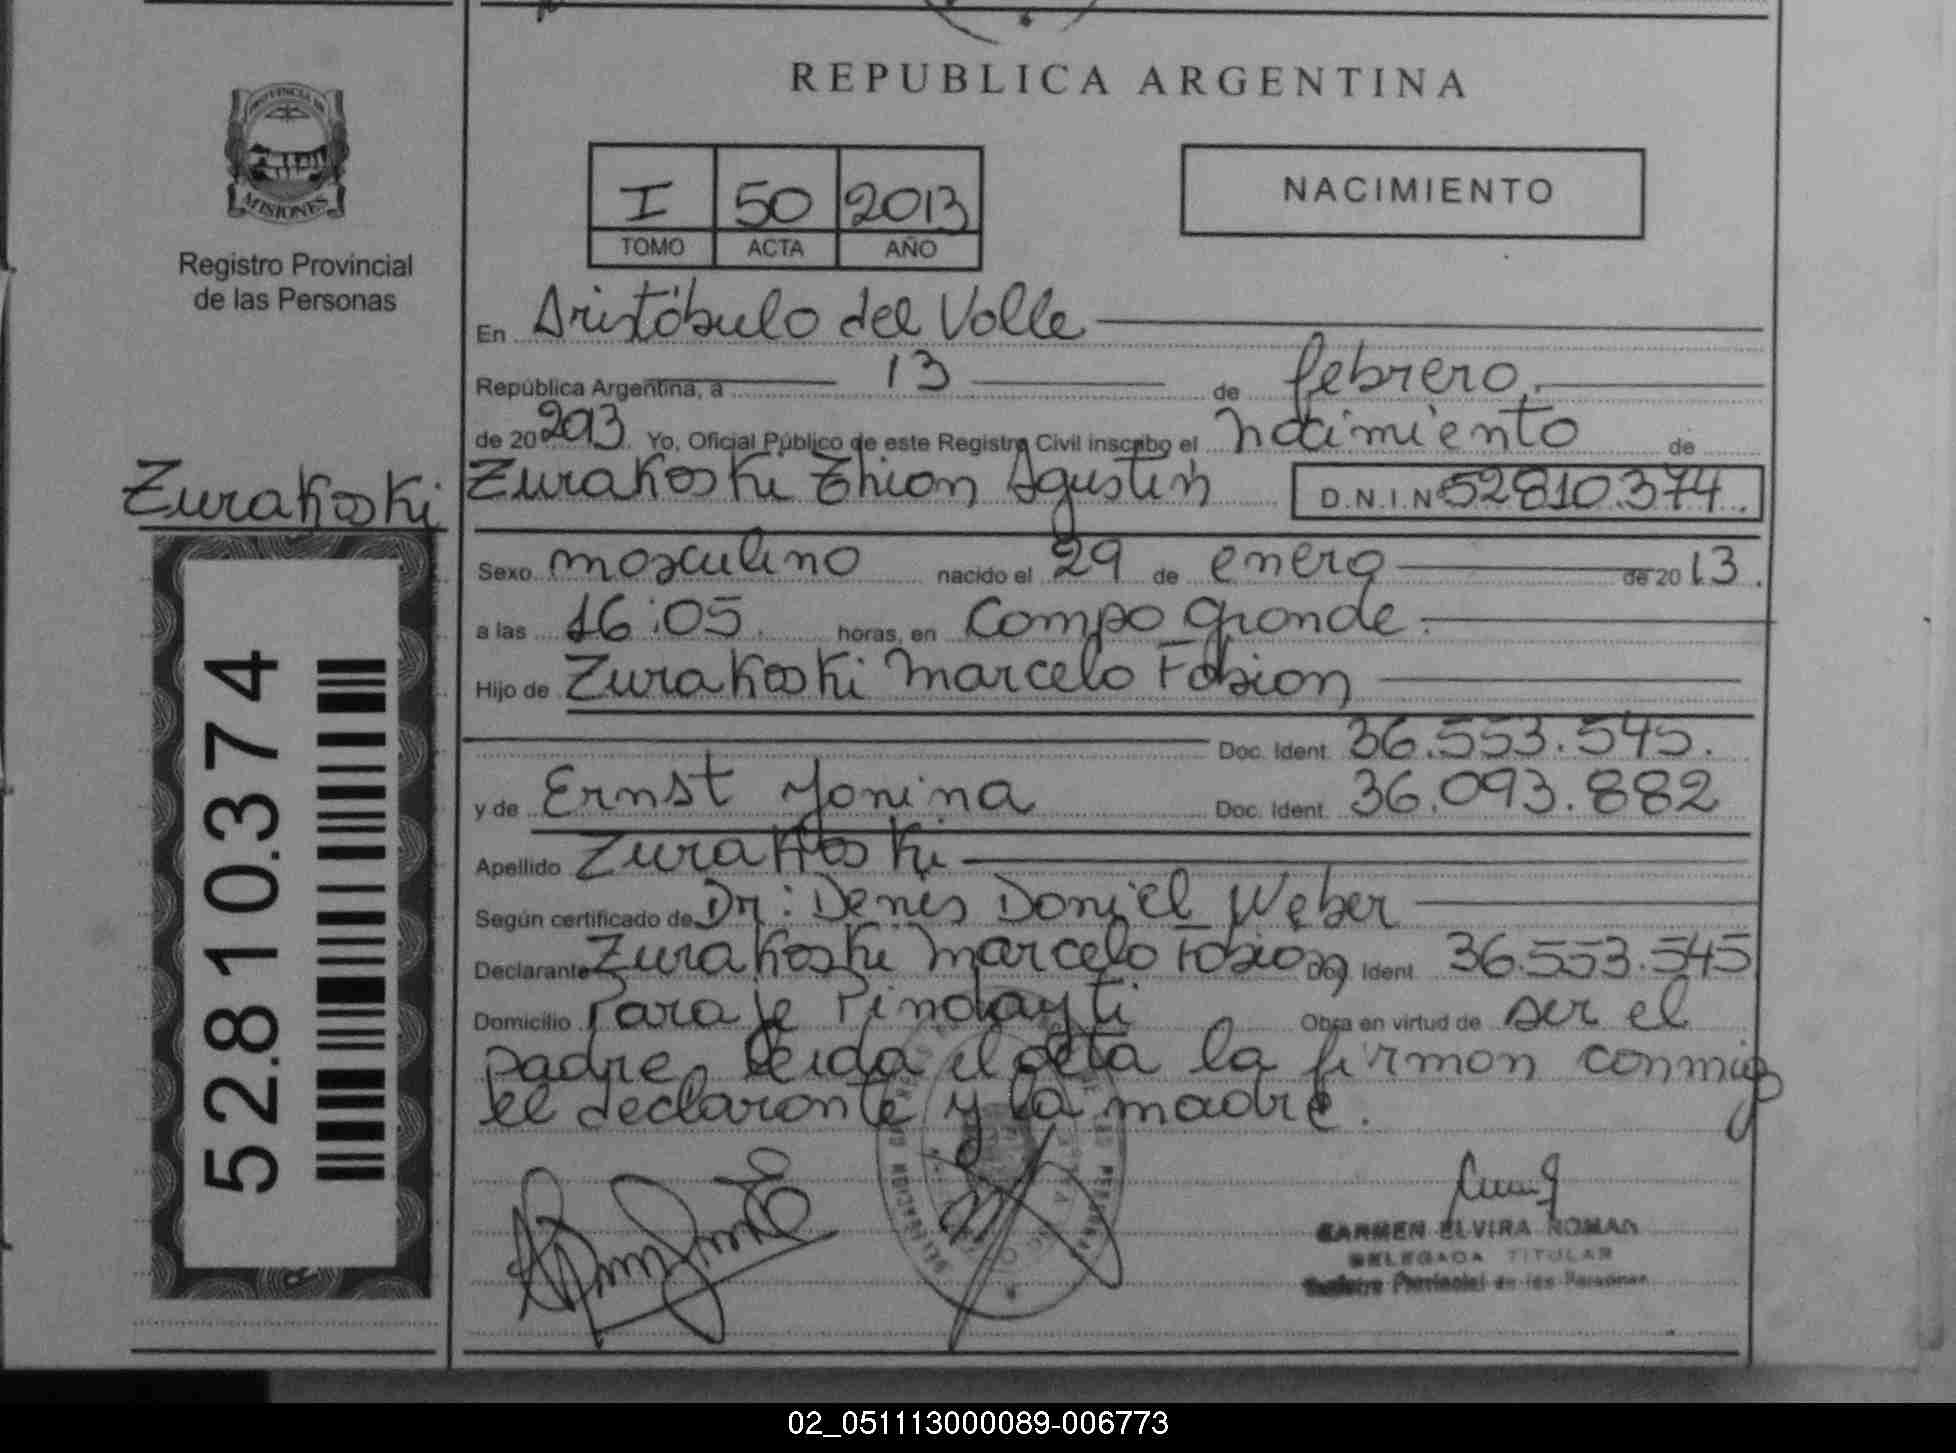 REPUBLICA ARGENTINA
PROVINCIA DE
MISIONES
Registro Provincial
de las Personas
I 50 2013
TOMO ACTA AÑO
NACIMIENTO
En Aristóbulo del Valle
República Argentina, a 13 de febrero.
de 20 2013. Yo, Oficial Público de este Registro Civil inscribo el nacimiento de
Zurakoski
Zurakoski Thian Agustin D.N.I.N 52810.374.
Sexo masculino nacido el 29 de enero de 20 13.
a las 16:05. horas, en Campo Grande.
Hijo de Zurakoski Marcelo Fabian
Doc. Ident. 36.553.545.
y de Ernst Yanina Doc. Ident. 36.093.882
Apellido Zurakoski
Según certificado de Dr: Denis Daniel Weber
Declarante Zurakoski Marcelo Fabian Doc. Ident. 36.553.545
Domicilio Paraje Pindayti Obra en virtud de ser el
padre, leida el acta la firman conmigo
el declarante y la madre.
52.810.374
CARMEN ELVIRA ROMAN
DELEGADA TITULAR
Registro Provincial de las Personas
02_051113000089-006773